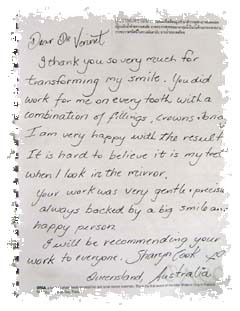 Dear Dr
I thank you so very much for
transforming my smile. You did
work for me on every tooth with a
combination of fillings, crowns
I am very happy with the result
It is hard to believe it is my
when I look in the mirror.
Your work was very gentle + precise
always backed by a big smile
happy person
I will be recommending your
work to everyone. Sharyn Cook xo
Queensland, Australia